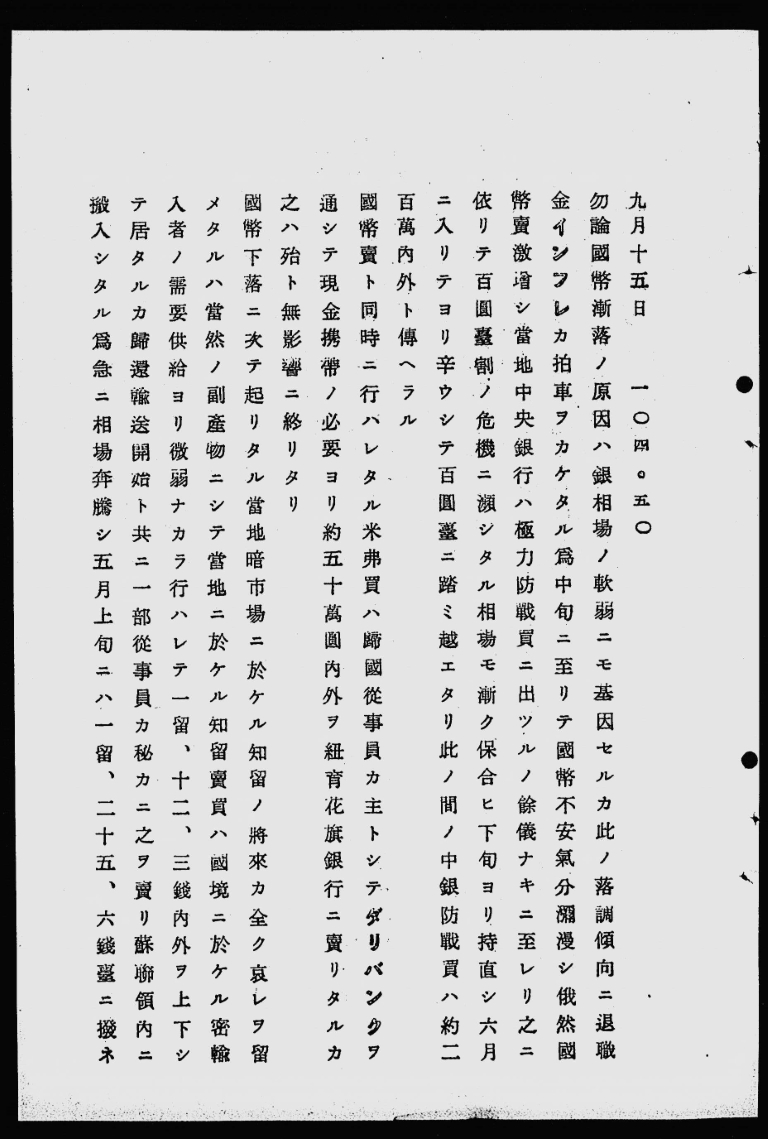 九月十五日　一〇四。五〇
勿論國幣漸落ノ原因ハ銀相場ノ軟弱ニモ基因セルカ此ノ落調傾向ニ退職
金インフレカ拍車ヲカケタル爲中旬ニ至リテ國幣不安氣分瀰漫シ俄然國
幣賣激增シ當地中央銀行ハ極力防戰買ニ出ツルノ餘儀ナキニ至レリ之ニ
依リテ百圓臺割ノ危機ニ瀕シタル相場モ漸ク保合ヒ下旬ヨリ持直シ六月
ニ入リテヨリ辛ウシテ百圓臺ニ踏ミ越エタリ此ノ間ノ中銀防戰買ハ約二
百萬內外ト傳ヘラル
國幣賣ト同時ニ行ハレタル米弗買ハ歸國從事員カ主トシテダリバンクヲ
通シテ現金携帶ノ必要ヨリ約五十萬圓內外ヲ紐育花旗銀行ニ賣リタルカ
之ハ殆ト無影響ニ終リタリ
國幣下落ニ次テ起リタル當地暗市場ニ於ケル知留ノ將來カ全ク哀レヲ留
メタルハ當然ノ副產物ニシテ當地ニ於ケル知留賣買ハ國境ニ於ケル密輸
入者ノ需要供給ヨリ微弱ナカラ行ハレテ一留、十二、三錢內外ヲ上下シ
テ居タルカ歸還輸送開始ト共ニ一部從事員カ秘カニ之ヲ賣リ蘇聯領內ニ
搬入シタル爲急ニ相場奔騰シ五月上旬ニハ一留、二十五、六錢臺ニ撥ネ